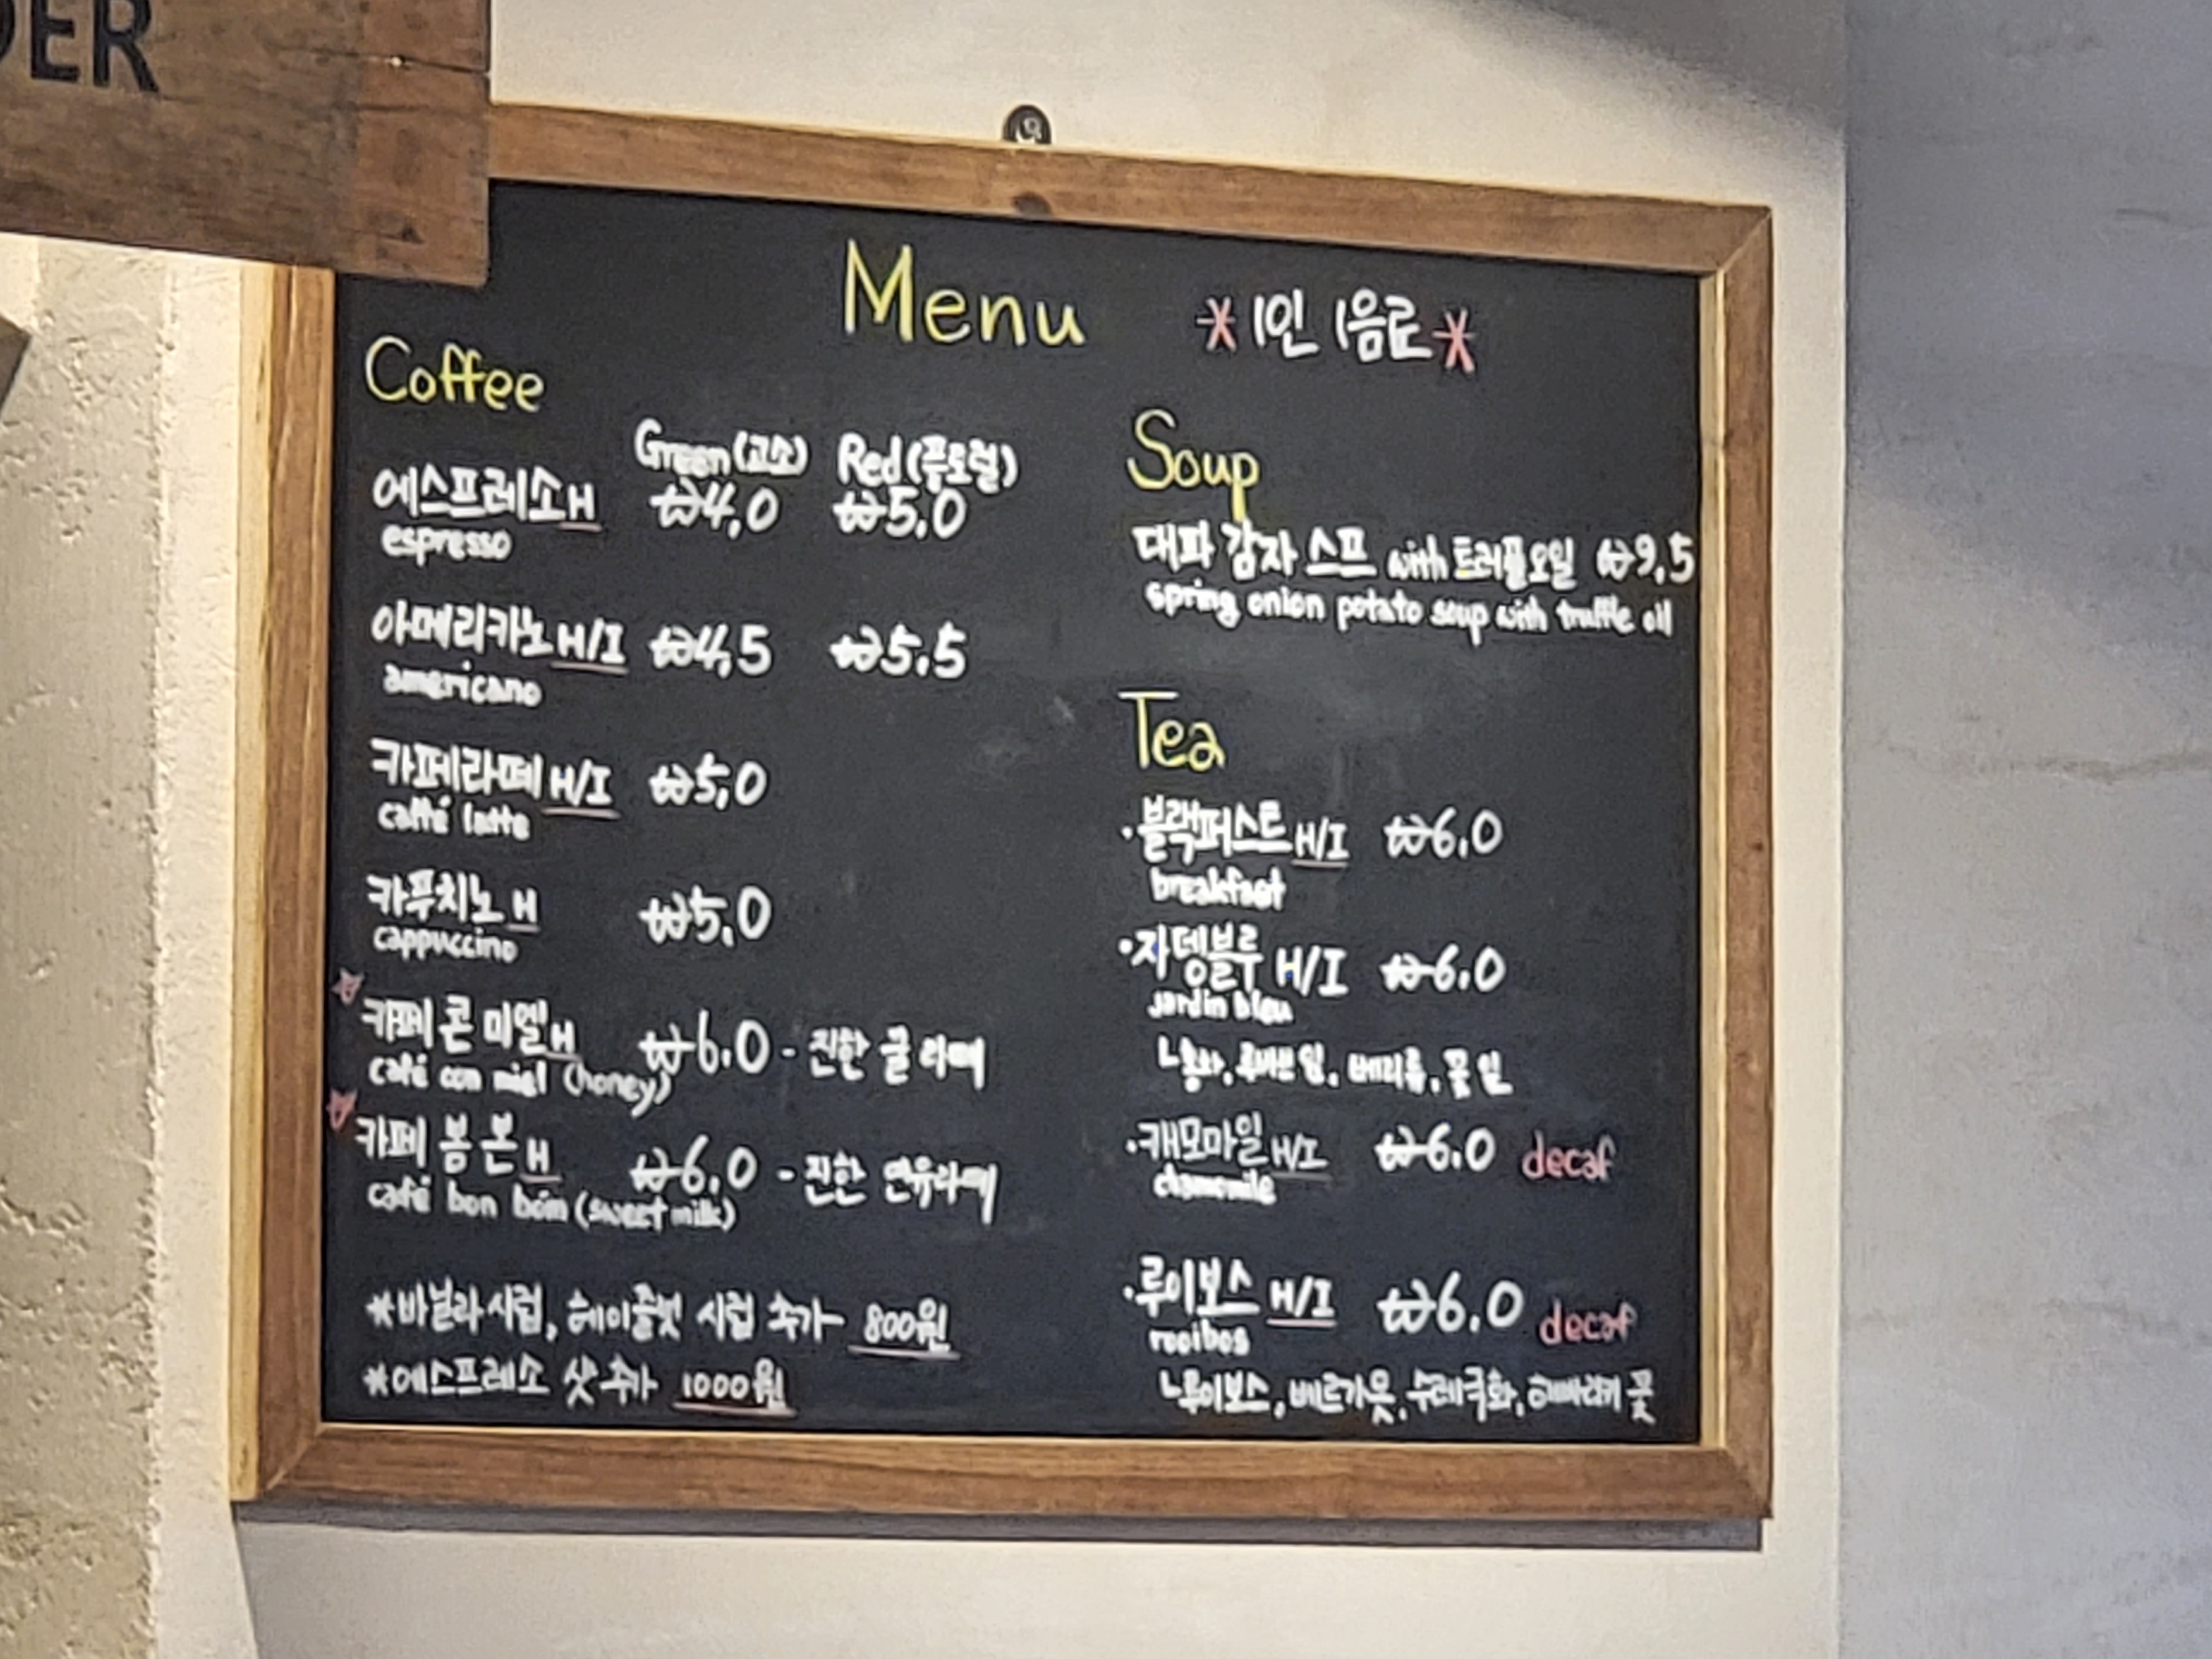 DER
Menu
*1인 1음료*
Coffee
Green(고소) Red(푸로럴)
에스프레소 H ₩4,0 ₩5,0
espresso
아메리카노 H/I ₩4,5 ₩5.5
americano
카페라떼 H/I ₩5,0
caffé latte
카푸치노 H ₩5,0
cappuccino
카페 콘 미엘 H ₩6.0 - 진한 꿀 라떼
café con miel (honey)
카페 봄 본 H ₩6.0 - 진한 연유라떼
café bon bóm (sweet milk)
*바닐라시럽, 헤이즐넛 시럽 추가 800원
*에스프레소 샷 추가 1000원
Soup
대파 감자 스프 with 트러플오일 ₩9,5
spring onion potato soup with truffle oil
Tea
·블랙퍼스트 H/I ₩6,0
breakfast
·자뎅블루 H/I ₩6.0
jardin bleu
ㄴ홍차, 루바브 잎, 베리류, 꽃 잎
·캐모마일 H/I ₩6.0 decaf
chamomile
·루이보스 H/I ₩6.0 decaf
rooibos
ㄴ루이보스, 베르가못, 수레국화,